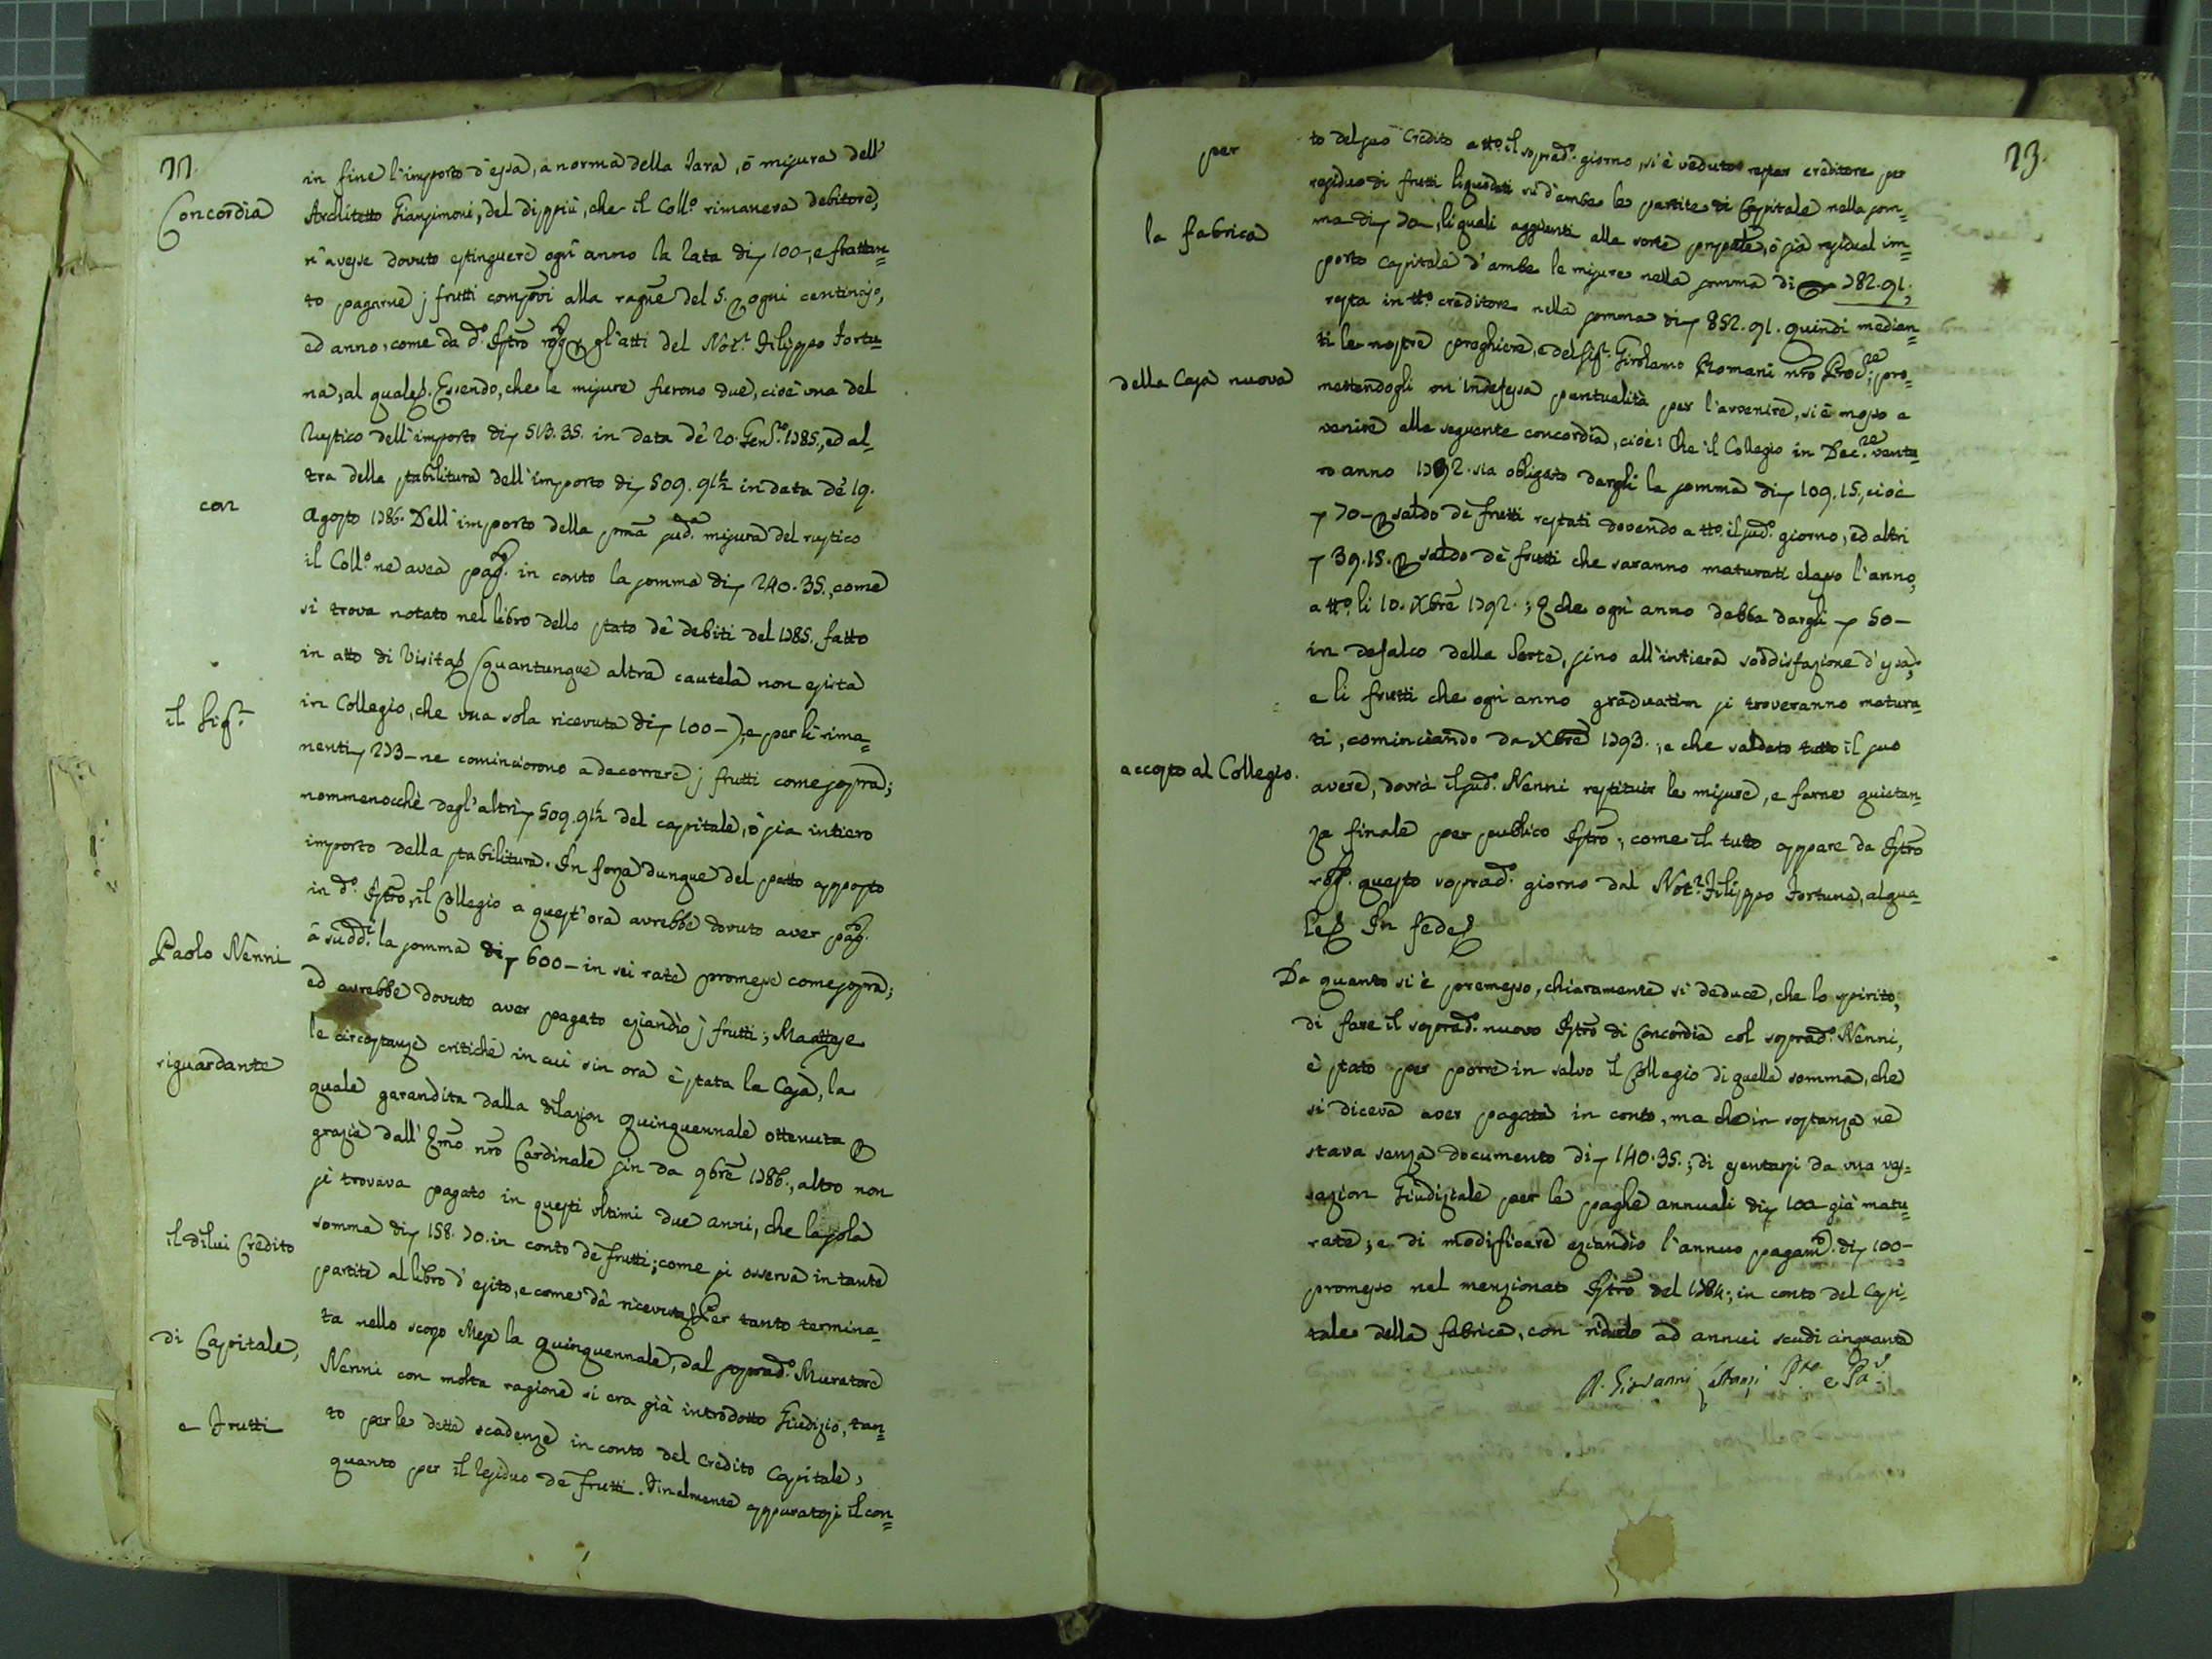 22.
Concordia
con
il Sig.r
Paolo Nenni
riguardante
il di lui Credito
di Capitale,
e Frutti
in fine l'importo d'essa, a norma della Tara, ò misura dell'
Architetto Giansimoni, del dippiù, che il Coll.o rimaneva debitore,
n'avesse dovuto estinguere ogn'anno la rata di 100-, e frattan=
to pagarne j frutti alla ragñe del 5. ogni centinajo,
ed anno, come da d.o Istrõ rog. gl'atti del Not.r Filippo Fortu=
na, al quale. Essendo, che le misure fierono due, cioè una del
Rustico dell'importo di 513.35. in data de' 20. Gen.ro 1785., ed al=
tra della stabilitura dell'importo di 509.91½ in data de' 19.
Agosto 1786. Dell'importo della prmã sud.a misura del rustico
il Coll.o ne avea pag. in conto la somma di 240.35., come
si trova notato nel libro dello stato de' debiti del 1785. fatto
in atto di Visita (quantunque altra cautela non esista
in Collegio, che una sola ricevuta di 100-), e per li rima=
nenti 273- ne cominciorono a decorrere j frutti come sopra;
nommenocchè degl'altri 509.91½ del capitale, ò sia intiero
importo della stabilitura. In forza dunque del patto apposto
in d.o Istrõ, il Collegio a quest'ora avrebbe dovuto aver pag.
à sudd.i la somma di 600- in sei rate promesse come sopra;
ed avrebbe dovuto aver pagato eziandìo j frutti; Ma attese
le circostanze critiche in cui sin ora è stata la Casa, la
quale garandita dalla dilazion quinquennale ottenuta
grazia dall'Emõ nrõ Cardinale sin da 9brẽ 1786., altro non
si trovava pagato in questi ultimi due anni, che la sola
somma di 158.70. in conto de' frutti; come si osserva in tante
partite al libro d'esito, e come da ricevuta. Per tanto termina=
ta nello scorso Mese la quinquennale, dal soprad.o Muratore
Nenni con molta ragione si era già introdotto Giudizio, tan=
to per le dette scadenze in conto del Credito Capitale,
quanto per il residuo de' frutti. Finalmente appuratosi il con=
23.
per
la fabrica
della Casa nuova
accosto al Collegio.
to del suo Credito a tt.o il soprad.o giorno, si è veduto restar creditore per
residuo di frutti liquidati sù d'ambe le partite di Capitale nella som=
ma di 70-, li quali aggiunti alla sorte, ò sia residual im=
porto capitale d'ambe le misure nella somma di 782.91.,
resta in tt.o creditore nella somma di 852.91. quindi median=
ti le nostre preghiere, e del Sig.r Girolamo Romani nrõ Proc.re; pro=
mettendogli un'indefessa puntualità per l'avvenire, si è mosso a
venire alla seguente concordia, cioè: Che il Collegio in Dec.re ventu=
ro anno 1792. sia obligato dargli la somma di 109.15., cioè
70- saldo de' frutti restati dovendo a tt.o il sud.o giorno, ed altri
39.15. saldo de' frutti che saranno maturati elasso l'anno,
a tt.o li 10. Xbrẽ 1792.; E che ogni anno debba dargli 50-
in defalco della Sorte, sino all'intiera soddisfazione d'essa,
e li frutti che ogni anno graduatim si troveranno matura=
ti, cominciando da Xbrẽ 1793., e che saldato tutto il suo
avere, dovrà il sud.o Nenni restituir le misure, e farne quietan=
za finale per publico Istrõ; come il tutto appare da Istrõ
rog. questo soprad.o giorno dal Not.r Filippo Fortuna, al qua=
le. In fede
Da quanto si è premesso, chiaramente si deduce, che lo spirito,
di fare il soprad.o nuovo Istrõ di Concordia col soprad.o Nenni,
è stato per porre in salvo il Collegio di quella somma, che
si diceva aver pagata in conto, ma che in sostanza ne
stava senza documento di 140.35.; di esentarsi da una ves=
sazion Giudiziale per le paghe annuali di 100- già matu=
rate; e di modificare eziandio l'annuo pagam.o di 100-
promesso nel menzionato Istrõ del 1784.; in conto del Capi=
tale della fabrica, con ridurlo ad annui scudi cinquanta
Giovanni